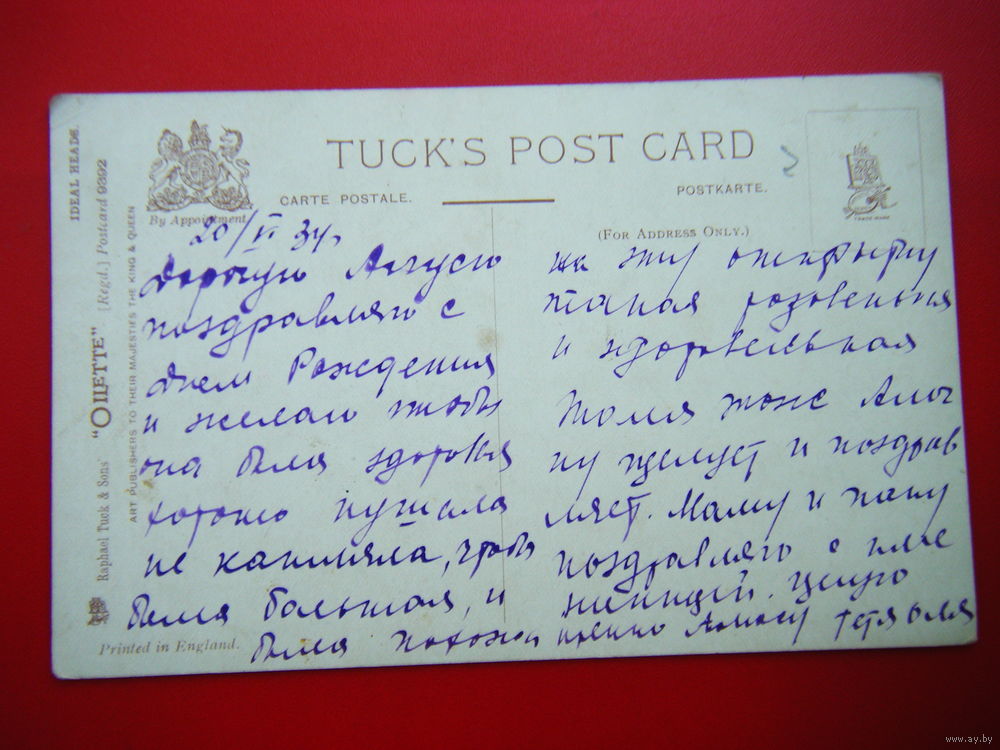 IDEAL HEADS.
Raphael Tuck & Sons' "OILETTE" [Regd.] Postcard 9392
ART PUBLISHERS TO THEIR MAJESTIES THE KING & QUEEN
By Appointment
TUCK'S POST CARD
CARTE POSTALE.
POSTKARTE.
(FOR ADDRESS ONLY.)
TRADE MARK
20/VI 34.
Дорогую
поздравляю с
днем Рождения
и желаю чтобы
она была здорова
хорошо кушала
не кашляла, чтобы
была большая, и
была похожа
на эту открытку
такая розовенькая
и здоровенькая
Толя тоже
ну целует и поздрав
ляет. Маму и папу
поздравляю с име
нинницей. Целую
крепко тетя Оля
Printed in England.
www.ay.by